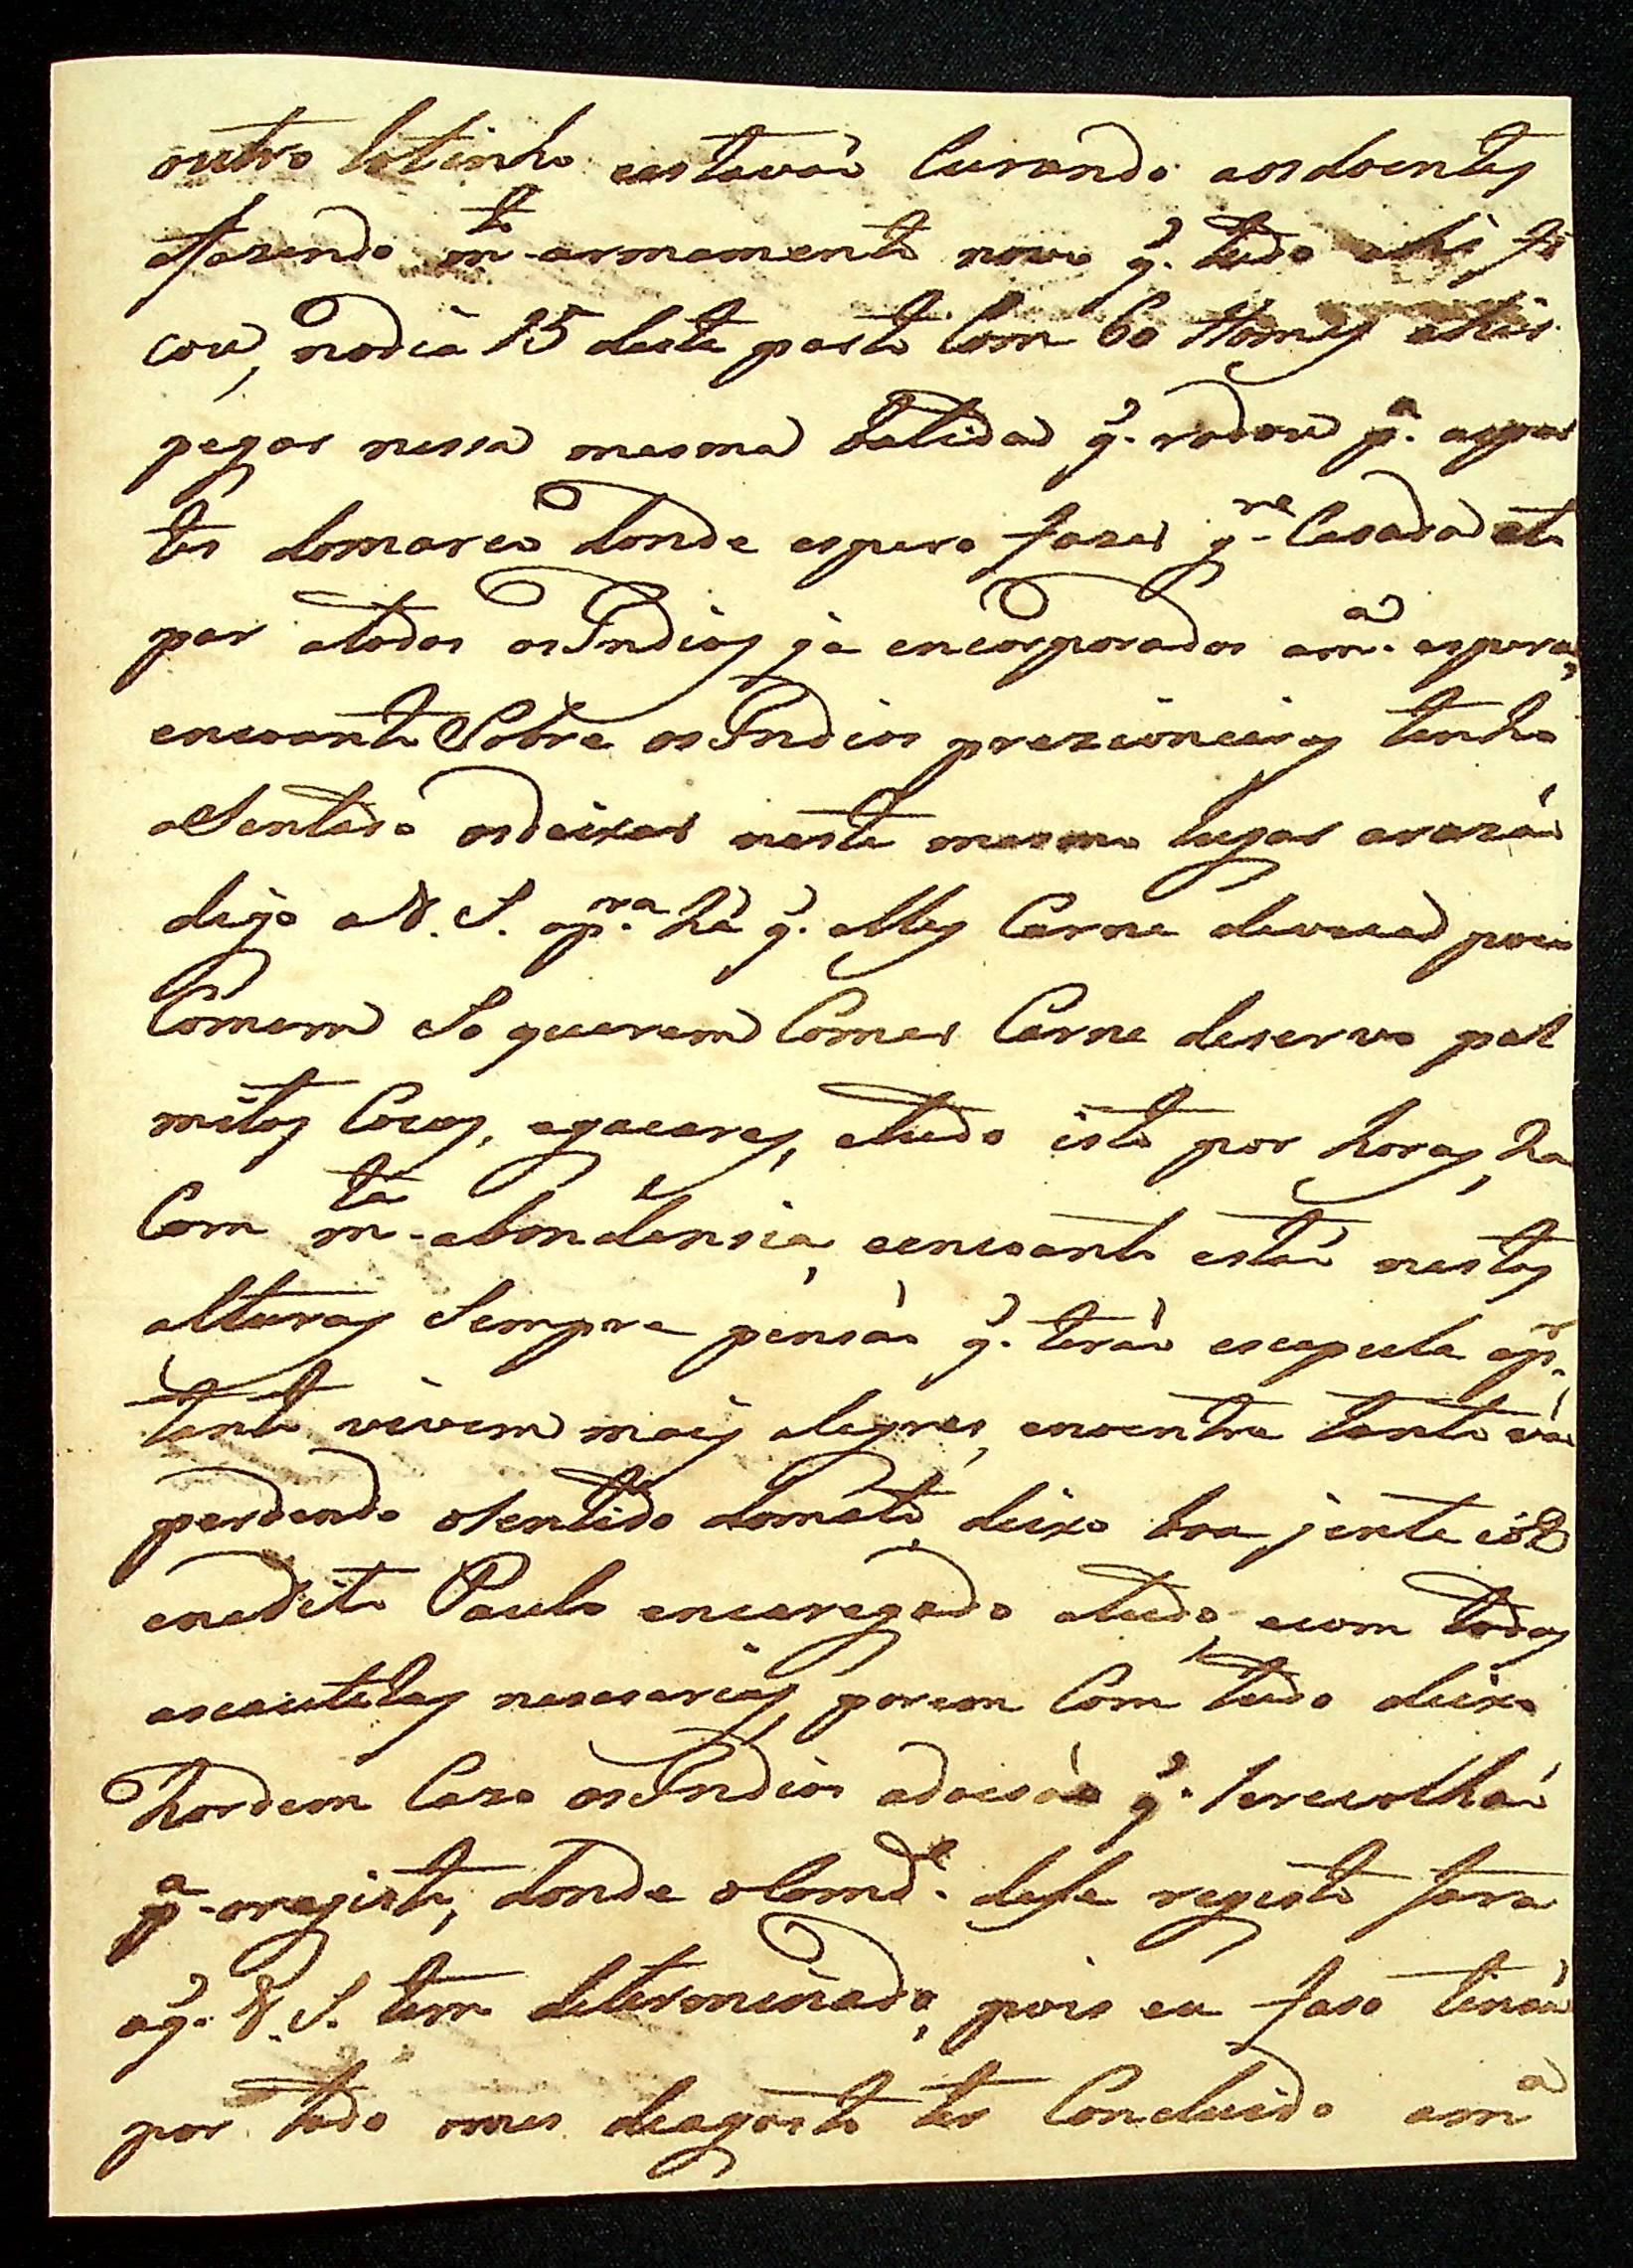 outro lotinho eestavaõ Curando aosdoentes
efazendo m.to armamento novo q.' tudo ahi fi
cou, nodia 15 deste parto Com 60 Homes ahis
pegar nessa mesma batida q.' rodou p.a aspar
tes domareo donde espero fazer g.re Casada eto
par atodos osIndios ja encorporados am.a espera,
encoanto Sobre osIndios prezioneiros tenho
aSentado osdeixar neste mesmo lugar arazaõ
digo aV. S. ap.ra hé q.' elles Carne devaca pouco
Comem So querem Comer Carne deservo pal
mitos Cocos, ejacares, etudo isto por horas, ha
Com m.ta abondansia, eencoanto estaõ nestas
alturas Sempre pensaõ q.' teraõ escapula ep.r
tanto vivem mais alegres, enoentre tanto vaõ
perdendo oSentido domato, deixo boa jente i o B
enedito Paulo encaregado atudo, ecom todas
ascautellas nesesarias, porem Com tudo deixo
hordem Cazo osIndios adoesaõ q.' Serecolhaõ
p.a oregisto, donde oComd.e desse registo fara
oq.' V. S. tem determinado, pois eu faso tensaõ
por todo omes deagosto ter Concluido am.a